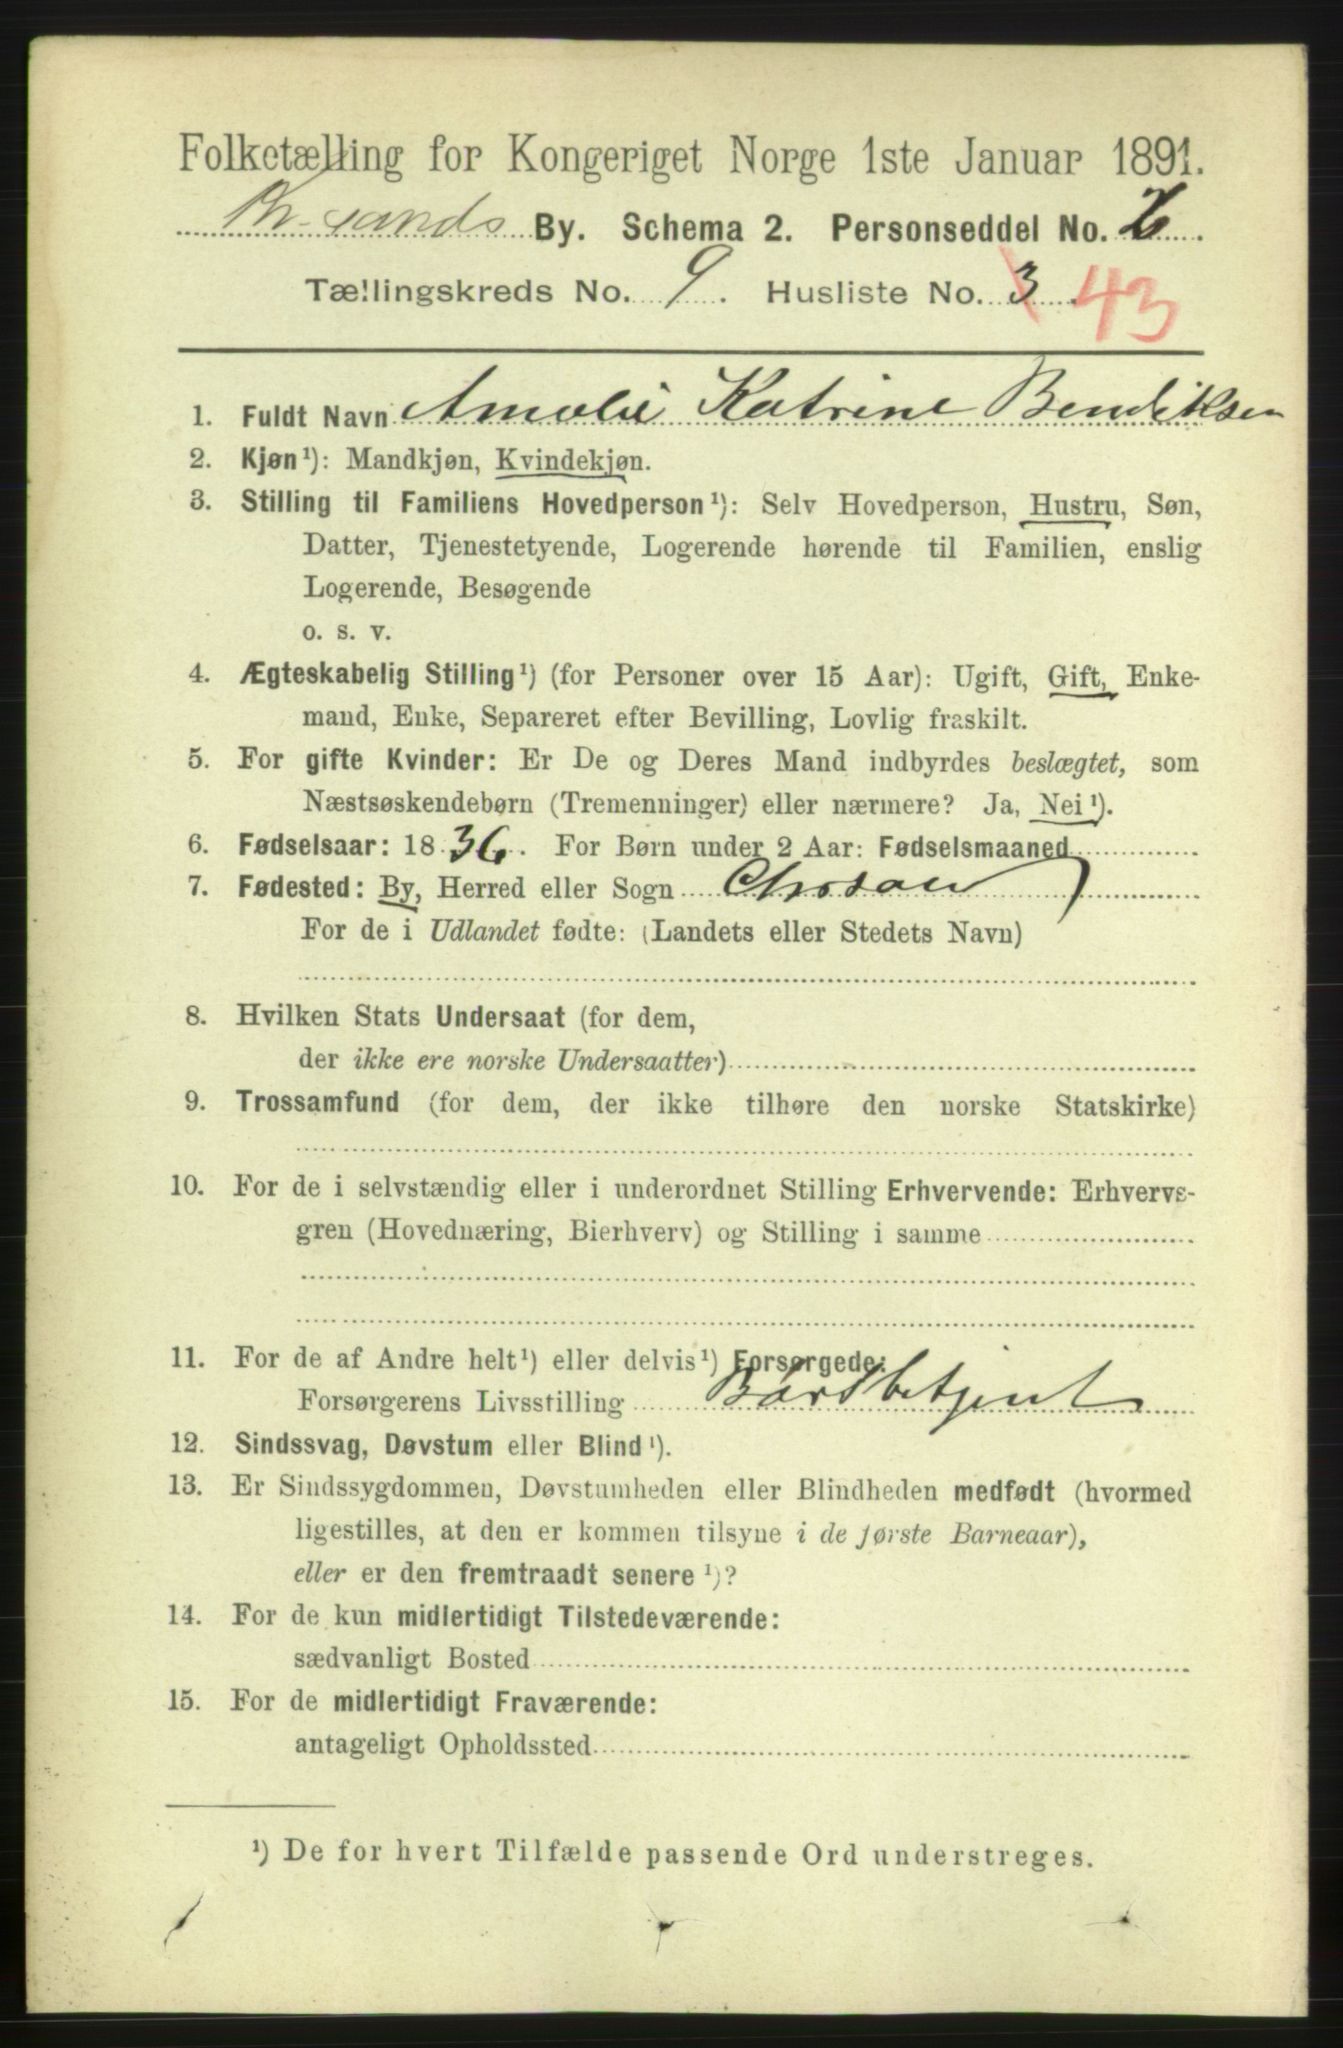 Folketælling for Kongeriget Norge 1ste Januar 1891.
Kr.sands By. Schema 2. Personseddel No. 2
Tællingskreds No. 9. Husliste No. 3. 43
1. Fuldt Navn Amalie Katrine Bendiksen
2. Kjøn¹): Mandkjøn, Kvindekjøn.
3. Stilling til Familiens Hovedperson¹): Selv Hovedperson, Hustru, Søn,
Datter, Tjenestetyende, Logerende hørende til Familien, enslig
Logerende, Besøgende
o. s. v.
4. Ægteskabelig Stilling¹) (for Personer over 15 Aar): Ugift, Gift, Enke-
mand, Enke, Separeret efter Bevilling, Lovlig fraskilt.
5. For gifte Kvinder: Er De og Deres Mand indbyrdes beslægtet, som
Næstsøskendebørn (Tremenninger) eller nærmere? Ja, Nei¹).
6. Fødselsaar: 1836. For Børn under 2 Aar: Fødselsmaaned
7. Fødested: By, Herred eller Sogn Chrsan
For de i Udlandet fødte: (Landets eller Stedets Navn)
8. Hvilken Stats Undersaat (for dem,
der ikke ere norske Undersaatter)
9. Trossamfund (for dem, der ikke tilhøre den norske Statskirke)
10. For de i selvstændig eller i underordnet Stilling Erhvervende: Erhvervs-
gren (Hovednæring, Bierhverv) og Stilling i samme
11. For de af Andre helt¹) eller delvis¹) Forsørgede:
Forsørgerens Livsstilling Børsbetjent
12. Sindssvag, Døvstum eller Blind¹).
13. Er Sindssygdommen, Døvstumheden eller Blindheden medfødt (hvormed
ligestilles, at den er kommen tilsyne i de første Barneaar),
eller er den fremtraadt senere¹)?
14. For de kun midlertidigt Tilstedeværende:
sædvanligt Bosted
15. For de midlertidigt Fraværende:
antageligt Opholdssted
¹) De for hvert Tilfælde passende Ord understreges.